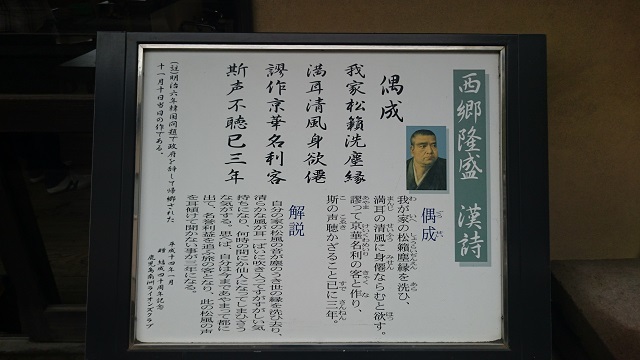 西郷隆盛 漢詩
偶成
我家松籟洗塵縁
満耳清風身欲僊
謬作京華名利客
斯声不聴已三年
偶成
ぐうせい
我が家の松籟塵縁を洗ひ、
満耳の清風に身僊ならむと欲す。
謬って京華名利の客と作り、
斯の声聴かざること已に三年。
解説
自分の家の松風の音が塵のうき世の縁を洗ひ去り、
清らかな風が耳いっぱいに吹き入ってすがすがしい気
持ちになり、何時の間にか仙人になってしまひさう
な気がする。思へば、自分は今まであやまって都に
出て、名誉利益を追う旅の客となり、此の松風の声
を耳傾けて聞かない事が三年になる。
(註)明治六年韓国問題で政府を辞して帰郷された
十一月十日当日の作である。
平成十四年一月
結成四十周年記念
鹿児島南洲ライオンズクラブ